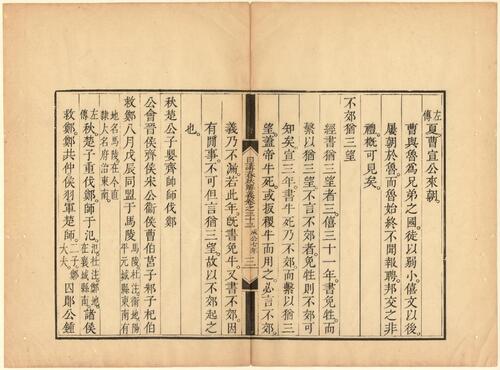 左傳夏曹宣公來朝
曹與魯爲兄弟之國徒以弱小僖文以後
屢朝於魯而魯始終不聞報聘邦交之非
禮概可見矣
不郊猶三望
經書猶三望者三僖三十一年書免牲而
繫以猶三望不言不郊者免牲則不郊可
知矣宣三年書牛死乃不郊而繫以猶三
望蓋帝牛死或扳稷牛而用之必言不郊
日講春秋解義卷之三十三 成公七年 三
義乃不漏若此年既書免牛又書不郊因
有閒事不可但言猶三望故以不郊起之
也
秋楚公子嬰齊帥師伐鄭
公會晉侯齊侯宋公衞侯曹伯莒子邾子杞伯
救鄭八月戊辰同盟于馬陵馬陵杜注衞地陽平元城縣東南有
地名馬陵在今直隷大名府治東南
左傳秋楚子重伐鄭師于氾氾杜注鄭地在襄城縣南諸侯
救鄭鄭共仲侯羽軍楚師二子鄭大夫囚鄖公鍾